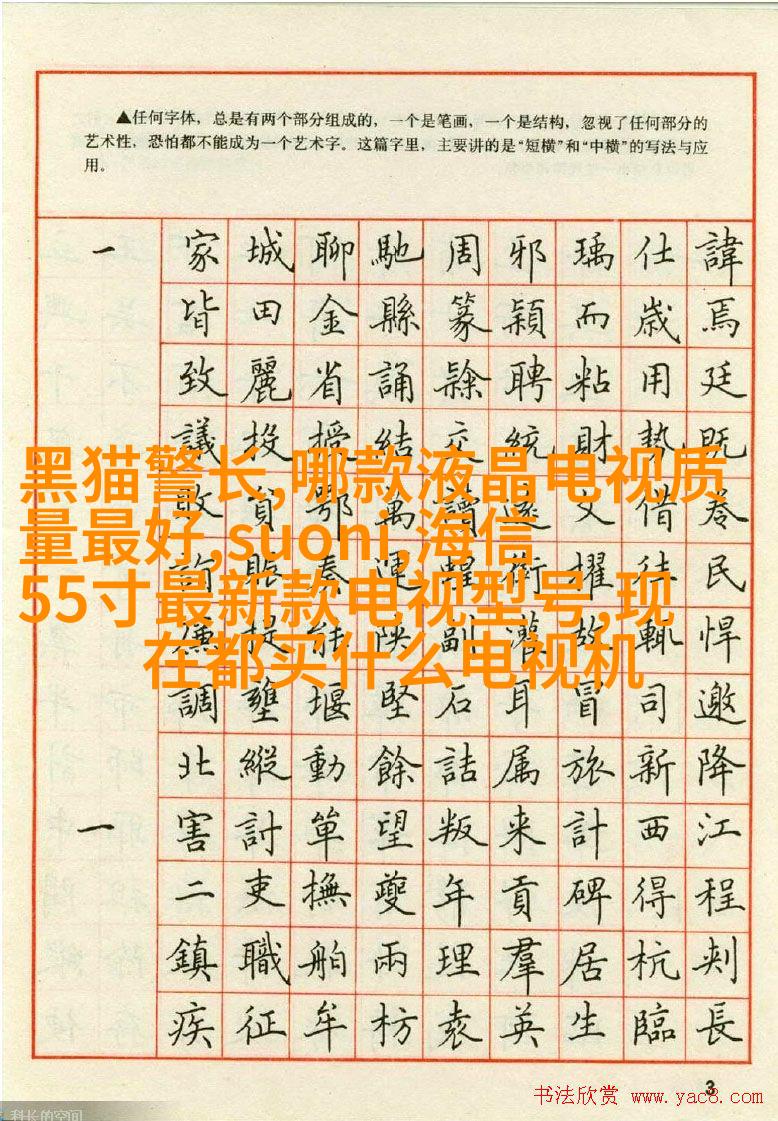 ▲任何字体，总是有两个部分组成的，一个是笔画，一个是结构，忽视了任何部分的
艺术性，恐怕都不能成为一个艺术字。这篇字里，主要讲的是“短横”和“中横”的写法与应
用。
一 家 城 聊 馳 周 邪 瑀 仕 諱
皆 田 金 縣 篆 穎 而 歳 焉
致 麗 省 誦 隸 聘 粘 用 廷
議 投 授 結 交 統 財 勢 既
黑猫警长,哪款液晶电视质
量最好,suoni,海信
55寸最新款电视型号,现
在都买什么电视机
敗 貧 鄂 萬 讀 文 借 卷
秦 運 擢 待 民
提 能 陝 副 故 輒 悍
調 壅 堰 堅 石 耳 冒 司 邀
北 縱 動 餘 詰 属 旅 新 降
一 害 討 單 望 叛 来 計 西 江
二 吏 撫 夔 年 貢 碑 得 程
鎮 職 船 兩 理 羣 居 杭
疾 征 牟 枋 袁 英 生 臨 長
3
书法欣赏 www.yac8.com
科长的空间